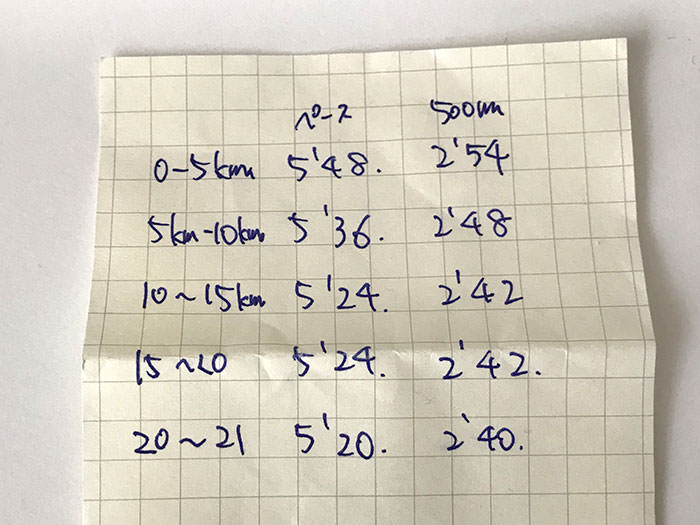 ペース 500m
0-5km 5'48. 2'54
5km-10km 5'36. 2'48
10~15km 5'24. 2'42
15~20 5'24. 2'42.
20~21 5'20. 2'40.